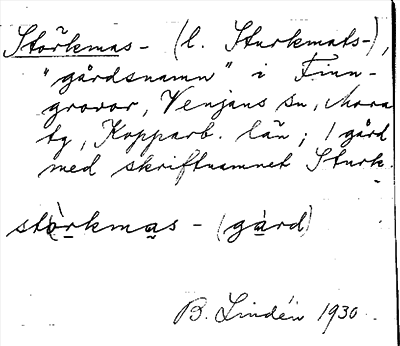 Störkmas- (l. Sturkmats-),
"gårdsnamn" i Finn-
grovor, Venjans sn, Mora
tg, Kopparb. län; 1 gård
med skriftnamnet Sturk.
stò̤rkmas - (gård)
B. Lindén 1930.